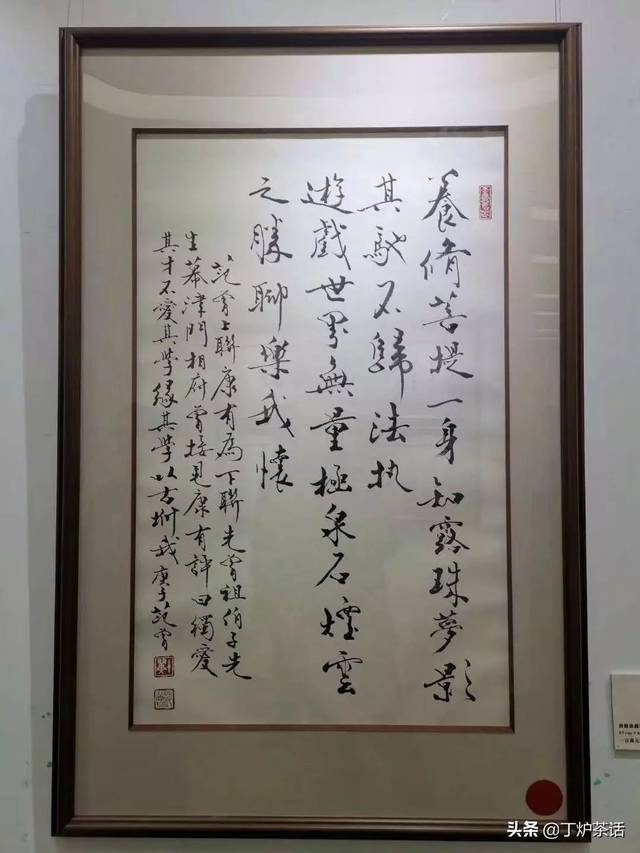 養脩菩提一身知露珠夢影
其馳不歸法执
遊戲世界無量極泉石煙雲
之勝聊樂我懷
范曾上聯康有為下聯先曾祖伯子先
生幕津門相府曾接見康有評曰獨愛
其才不愛其學緣其學以古坿我庚子范曾
头条@丁炉茶话